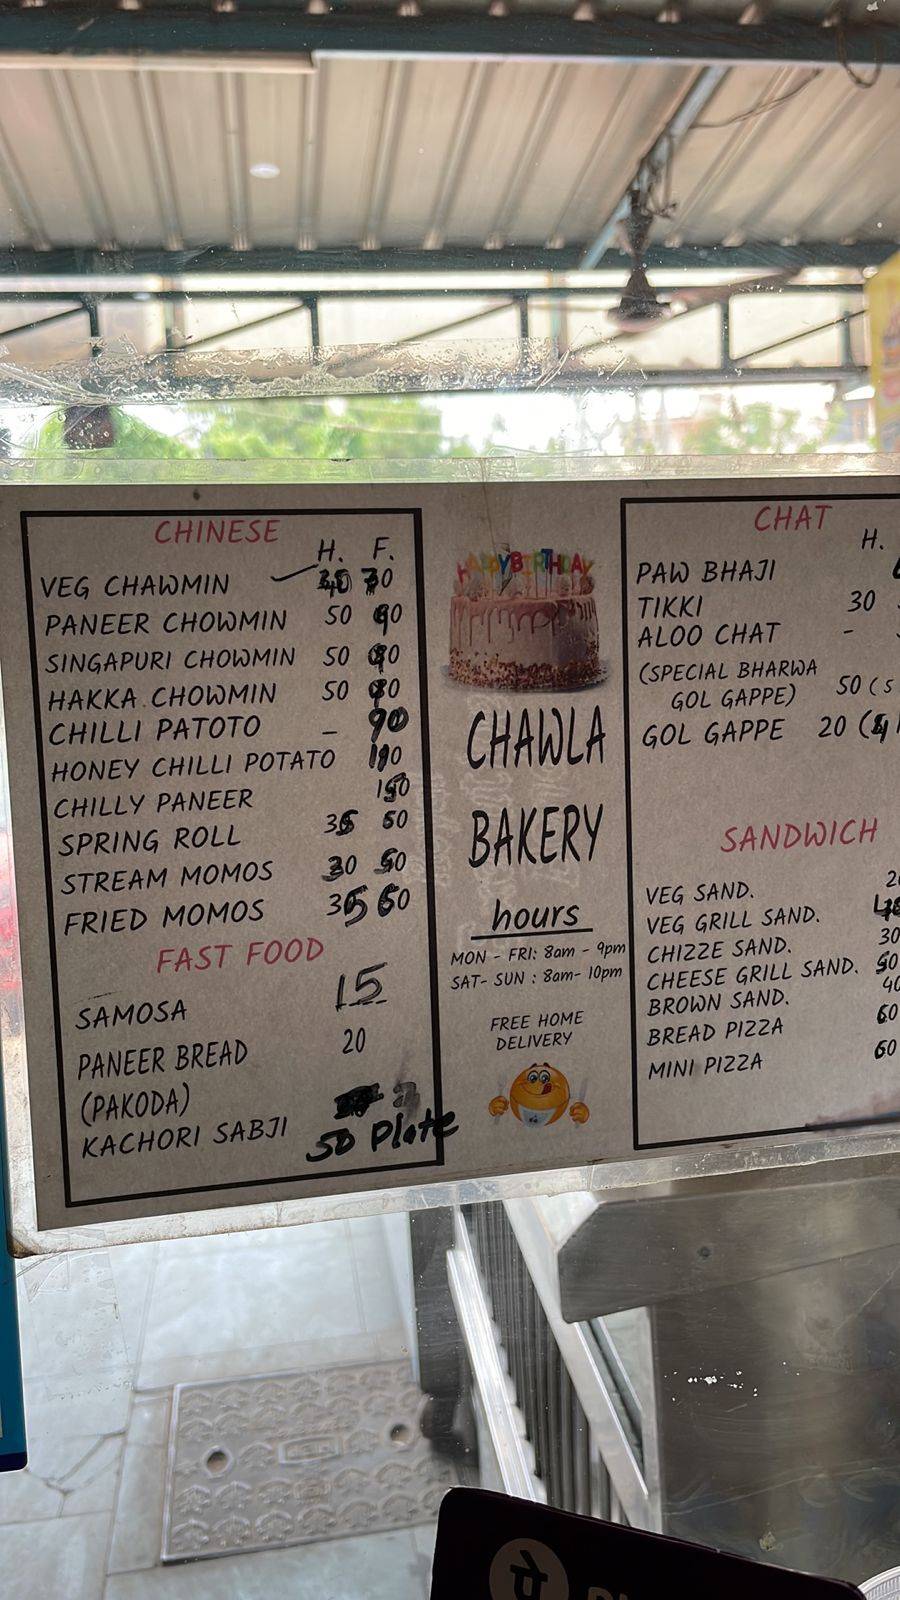 CHINESE
H. F.
VEG CHAWMIN
PANEER CHOWMIN 50
SINGAPURI CHOWMIN 50
HAKKA CHOWMIN 50
CHILLI PATOTO - 90
HONEY CHILLI POTATO
CHILLY PANEER
SPRING ROLL
STREAM MOMOS 30 50
FRIED MOMOS 60
FAST FOOD
SAMOSA 15
PANEER BREAD 20
(PAKODA)
KACHORI SABJI
50 Plate
HAPPY BIRTHDAY
CHAWLA
BAKERY
hours
MON - FRI: 8am - 9pm
SAT- SUN : 8am- 10pm
FREE HOME
DELIVERY
CHAT
H.
PAW BHAJI
TIKKI 30
ALOO CHAT -
(SPECIAL BHARWA
GOL GAPPE) 50 (5
GOL GAPPE 20 (
SANDWICH
VEG SAND.
VEG GRILL SAND.
CHIZZE SAND. 30
CHEESE GRILL SAND. 50
BROWN SAND. 40
BREAD PIZZA 60
MINI PIZZA 60
पे